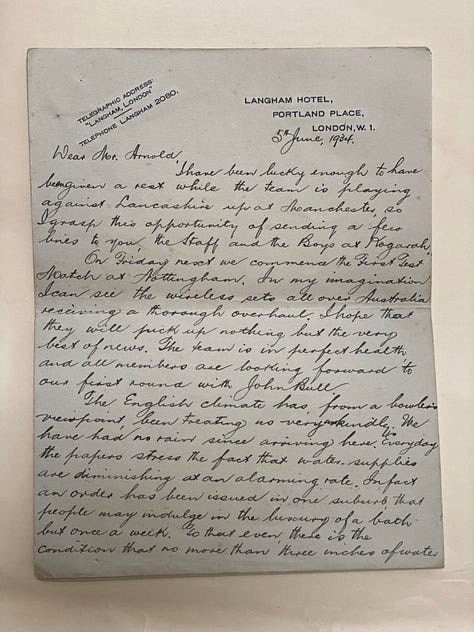 TELEGRAPHIC ADDRESS:
"LANGHAM, LONDON"
TELEPHONE LANGHAM 2080.
LANGHAM HOTEL,
PORTLAND PLACE,
LONDON, W.1.
5th June, 1934.
Dear Mr. Arnold,
I have been lucky enough to have
been given a rest while the team is playing
against Lancashire up at Manchester, so
I grasp this opportunity of sending a few
lines to you, the Staff and the Boys at Mogarah.
On Friday next we commence the First Test
Match at Nottingham. In my imagination
I can see the wireless sets all over Australia
receiving a thorough overhaul. I hope that
they will pick up nothing but the very
best of news. The team is in perfect health
and all members are looking forward to
our first round with John Bull
The English climate has, from a bowler's
viewpoint, been treating us very kindly. We
have had no rain since arriving here. Everyday
the papers stress the fact that water supplies
are diminishing at an alarming rate. In fact
an order has been issued in one suburb that
people may indulge in the luxury of a bath
but once a week. To that even, there is the
condition that no more than three inches of wate